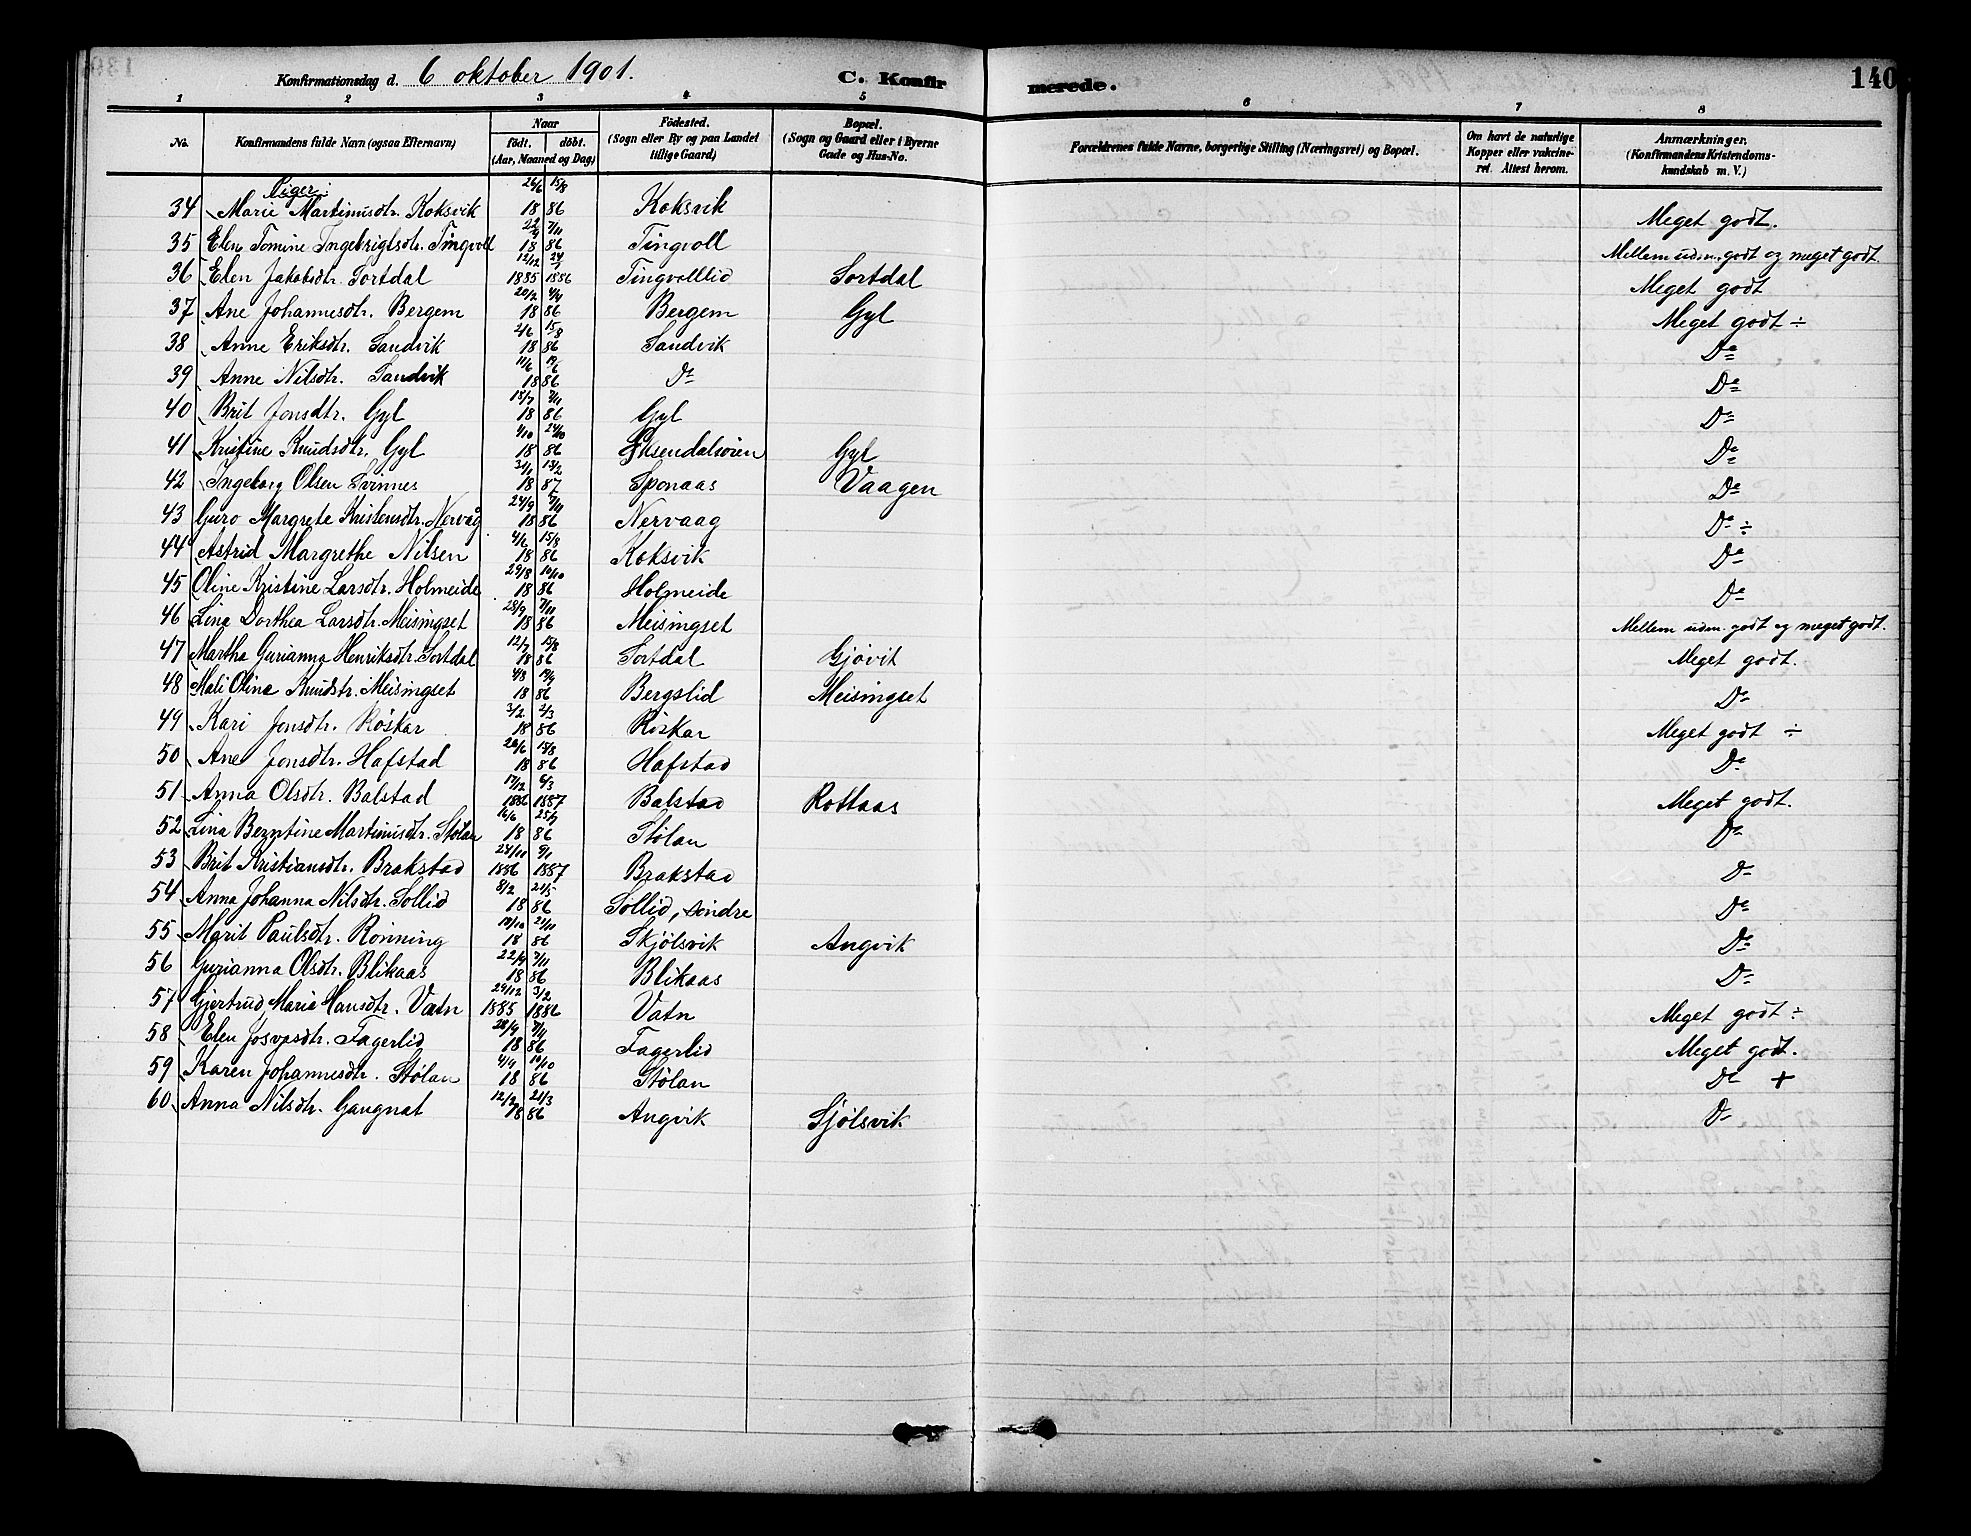 Konfirmationsdag d. 6 oktober 1901. C. Konfirmerede. 140
1 2 3 4 5 6 7 8
No. Konfirmandens fulde Navn (ogsaa Efternavn) Naar født, døbt. (Aar, Maaned og Dag) Födested. (Sogn eller By og paa Landet tillige Gaard) Bopæl. (Sogn og Gaard eller i Byerne Gade og Hus-No. Forældrenes fulde Navne, borgerlige Stilling (Næringsvei) og Bopæl. Om havt de naturlige Kopper eller vakcineret. Attest herom. Anmærkninger. (Konfirmandens Kristendomskundskab m. V.)
Piger:
34 Marie Martinusdtr. Koksvik 26/6 15/8 1886 Koksvik Meget godt.
35 Elen Tomine Ingebrigtsdtr. Tingvoll 22/9 7/11 1886 Tingvoll Mellem udm. godt og meget godt.
36 Elen Jakobsdtr. Sortdal 12/12 1885 1886 Tingvollid Sortdal Meget godt
37 Ane Johannesdtr. Bergem 20/2 4/4 1886 Bergem Gyl Meget godt ÷
38 Anne Eriksdtr. Sandvik 2/6 15/8 1886 Sandvik Do
39 Anne Nilsdtr. Sandvik 11/6 1886 Do Do
40 Brit Jonsdtr. Gyl 18/7 1886 Gyl Do
41 Kristine Knudsdtr. Gyl 4/10 24/10 1886 Øksendalsøren Gyl Do
42 Ingeborg Olsen Svinnes 13/2 1887 Sponaas Vaagen Do
43 Guro Margrete Kristensdtr. Nervåg 24/9 7/11 1886 Nervaag Do ÷
44 Astrid Margrethe Nilsen 4/6 15/8 1886 Koksvik Do
45 Oline Kristine Larsdtr. Holmeide 29/8 10/10 1886 Holmeide Do
46 Lina Dorthea Larsdtr. Meisingset 28/9 7/11 1886 Meisingset Mellem udm. godt og meget godt.
47 Martha Gurianna Henriksdtr. Sortdal 12/7 15/8 1886 Sortdal Gjøvik Meget godt.
48 Mali Olina Knudstr. Meisingset 4/8 19/9 1886 Bergslid Meisingset Do
49 Kari Jonsdtr. Röskar 3/2 2/3 1886 Röskar Meget godt ÷
50 Ane Jonsdtr. Hafstad 20/6 15/8 1886 Hafstad Do
51 Anna Olsdtr. Balstad 17/12 6/3 1886 1887 Balstad Rottaas Meget godt.
52 Lina Berntine Martinusdtr. Stølan 16/6 25/7 1886 Stølan Do
53 Brit Kristiansdtr. Brakstad 24/11 9/1 1886 1887 Brakstad Do
54 Anna Johanna Nilsdtr. Sollid 8/2 21/5 1886 Sollid, søndre Do
55 Marit Paulsdtr. Rønning 10/10 21/11 1886 Skjølsvik Angvik Do
56 Gurianna Olsdtr. Blikaas 22/9 7/11 1886 Blikaas Do
57 Gjertrud Maria Hansdtr. Vatn 29/12 3/2 1885 1886 Vatn Meget godt ÷
58 Elen Josvasdtr. Fagerlid 28/9 7/11 1886 Fagerlid Meget godt.
59 Karen Johannesdtr. Stølan 4/9 10/10 1886 Stølan Do +
60 Anna Nilsdtr. Gaugnat 12/2 21/3 1886 Angvik Sjølsvik Do